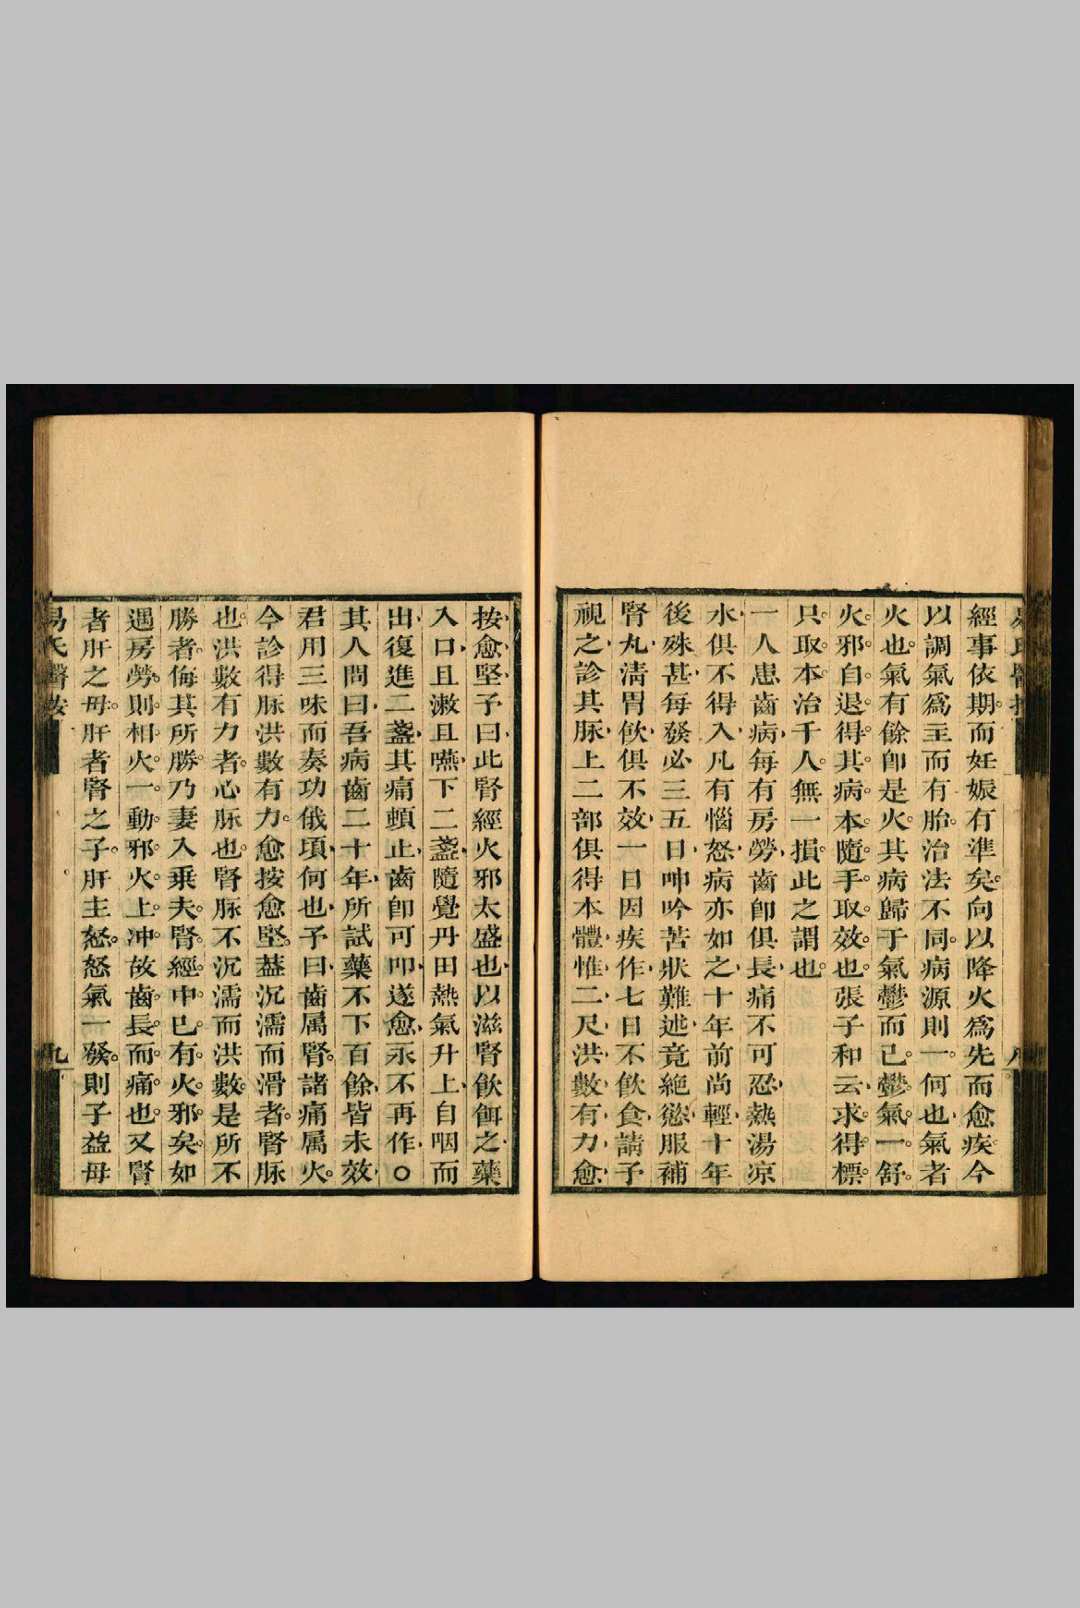 經事依期而妊娠有準矣向以降火爲先而愈疾今
以調氣爲主而有胎治法不同病源則一何也氣者
火也氣有餘卽是火其病歸于氣鬱而已鬱氣一舒
火邪自退得其病本隨手取效也張子和云求得標
只取本治千人無一損此之謂也
一人患齒病每有房勞齒卽俱長痛不可忍熱湯凉
水俱不得入凡有惱怒病亦如之十年前尚輕十年
後殊甚每發必三五日呻吟苦狀難述竟絶慾服補
腎丸淸胃飮俱不效一日因疾作七日不飮食請予
視之診其脉上二部俱得本體惟二尺洪數有力愈
按愈堅予曰此腎經火邪太盛也以滋腎飮餌之藥
入口且漱且嚥下二盞隨覺丹田熱氣升上自咽而
出復進二盞其痛頓止齒卽可叩遂愈永不再作○
其人問曰吾病齒二十年所試藥不下百餘皆未效
君用三味而奏功俄頃何也予曰齒属腎諸痛属火
今診得脉洪數有力愈按愈堅葢沉濡而滑者腎脉
也洪數有力者心脉也腎脉不沉濡而洪數是所不
勝者侮其所勝乃妻入乗夫腎經中已有火邪矣如
遇房勞則相火一動邪火上冲故齒長而痛也又腎
者肝之母肝者腎之子肝主怒怒氣一發則子益母
易氏醫按
九